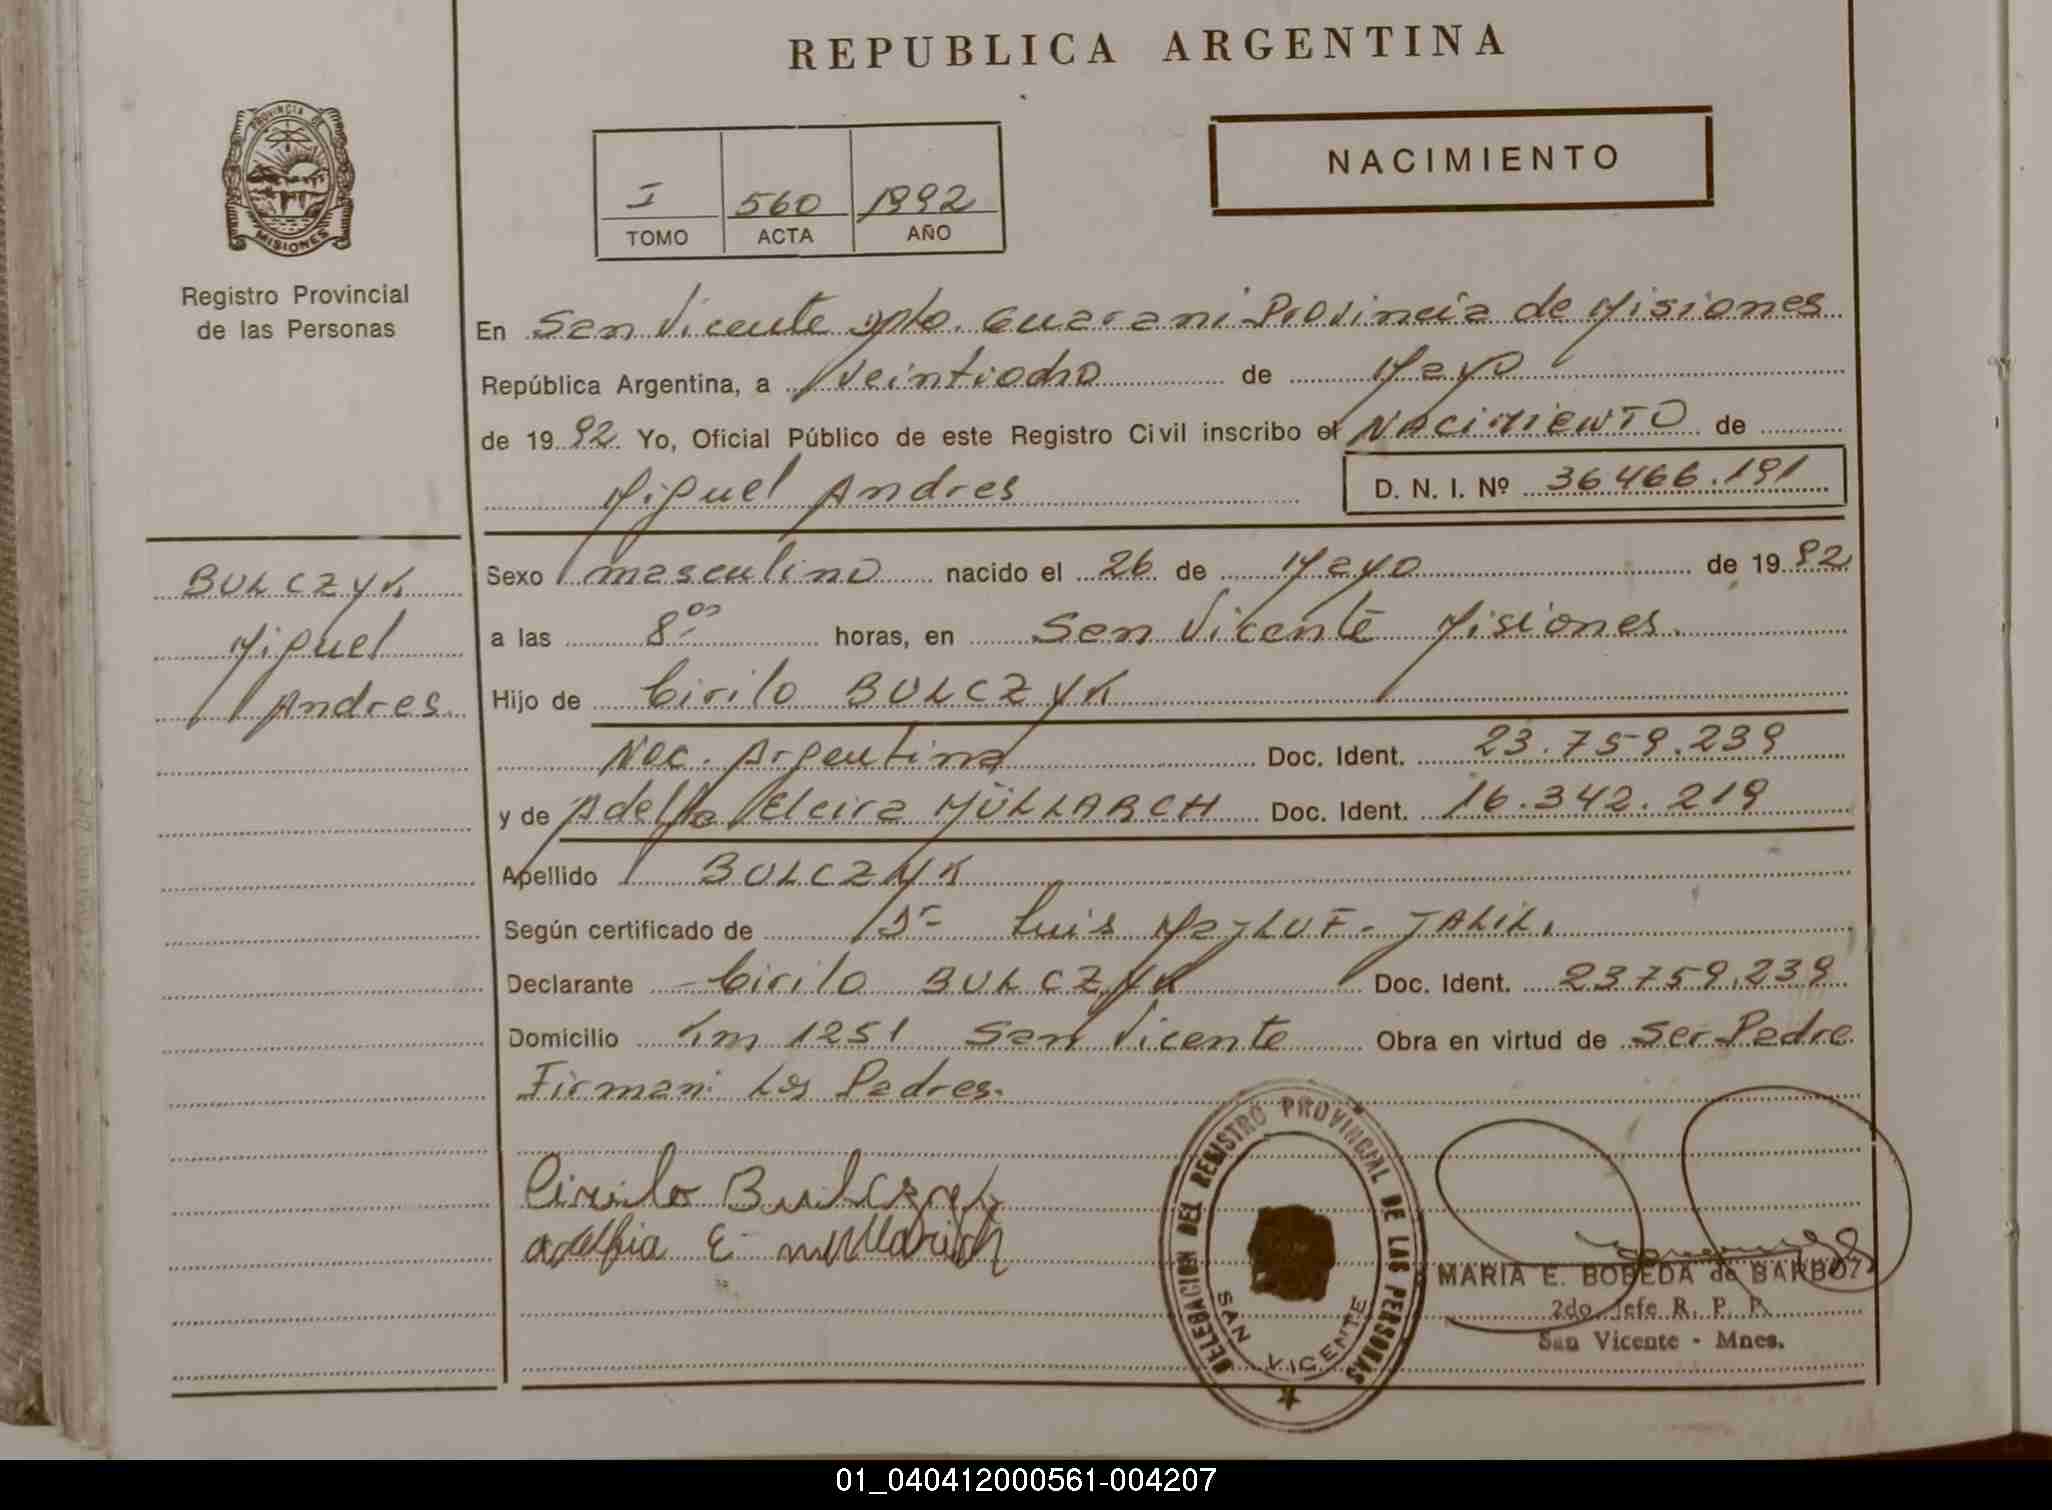 REPUBLICA ARGENTINA
PROVINCIA DE
MISIONES
Registro Provincial
de las Personas
I 560 1992
TOMO ACTA AÑO
NACIMIENTO
En San Vicente Dpto. Guarani Provincia de Misiones
República Argentina, a Veintiocho de Mayo
de 1992 Yo, Oficial Público de este Registro Civil inscribo el NACIMIENTO de
Miguel Andres D. N. I. Nº 36466.191
BULCZYK
Miguel
Andres.
Sexo masculino nacido el 26 de Mayo de 1992
a las 8 00 horas, en San Vicente Misiones.
Hijo de Cirilo BULCZYK
Nac. Argentina Doc. Ident. 23.759.239
y de Adelfa Elcira MÜLLARCH Doc. Ident. 16.342.219
Apellido BULCZYK
Según certificado de Dr Luis MajLUF. JALIL.
Declarante Cirilo BULCZYK Doc. Ident. 23759.239
Domicilio Km 1251 San Vicente Obra en virtud de Ser Padre
Firman: Los Padres.
Cirilo Bulczyk
adelfia E
DELEGACION DEL REGISTRO PROVINCIAL DE LAS PERSONAS
SAN VICENTE
MARIA E. BOBEDA de BARBOZA
2do. Jefe R. P. P.
San Vicente - Mnes.
01_040412000561-004207